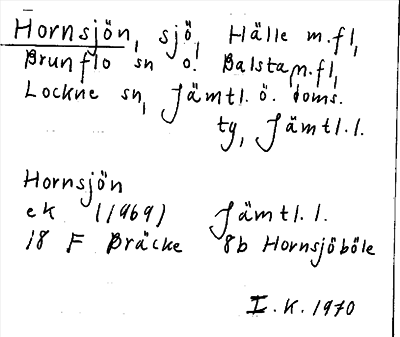 Hornsjön, sjö, Hälle m.fl,
Brunflo sn o. Balsta m.fl,
Lockne sn, Jämtl. ö. doms.
ty, Jämtl.l.
Hornsjön
ek (1969) Jämtl.l.
18 F Bräcke 8b Hornsjöböle
I.K. 1970